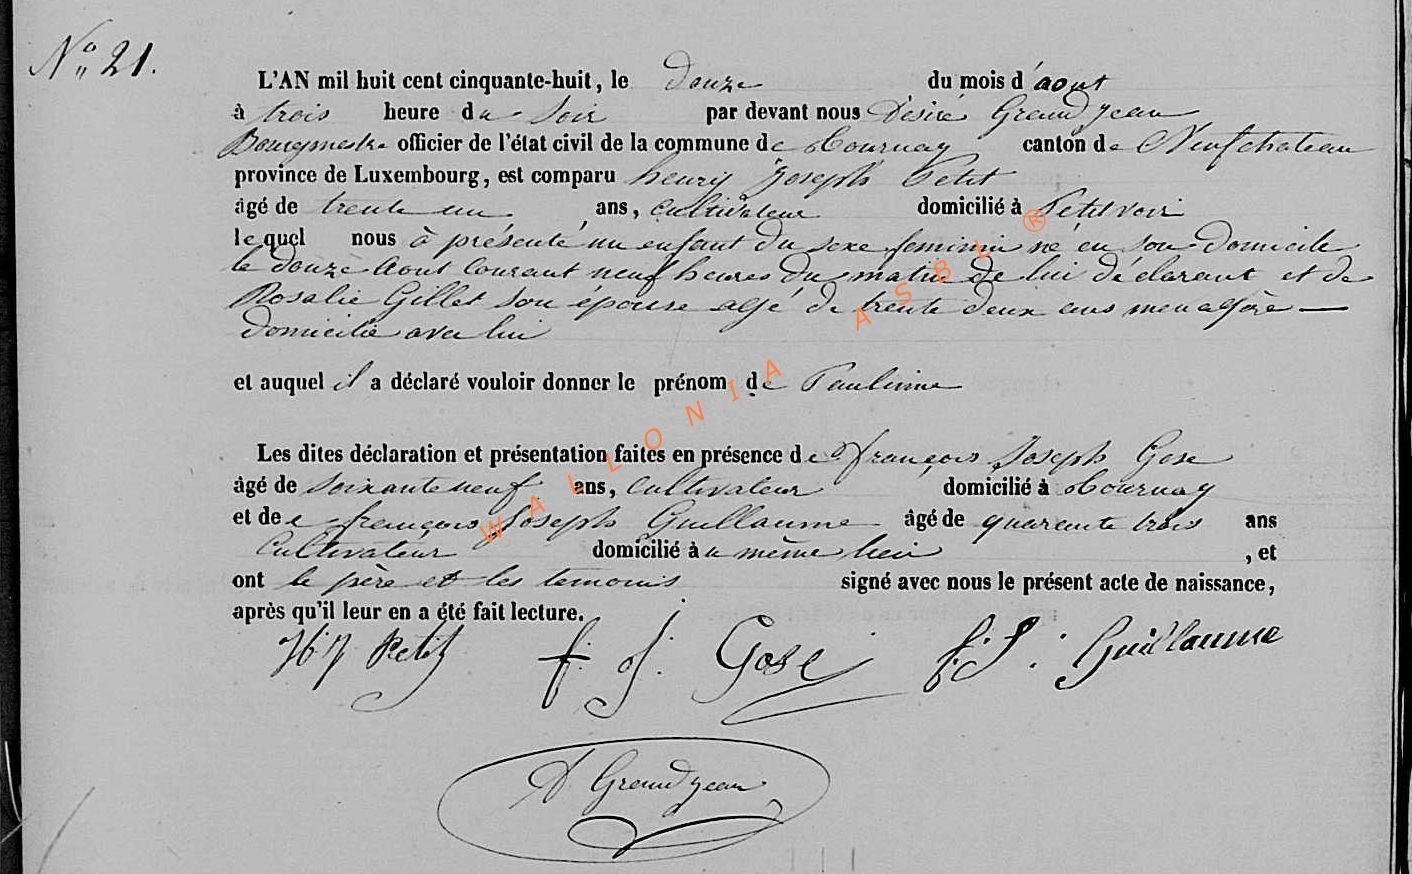 No 21.
L'AN mil huit cent cinquante-huit, le douze du mois d'aout
à trois heure du Soir par devant nous Désiré Grandjean
Bourgmestre officier de l'état civil de la commune de Tournay canton de Neufchateau
province de Luxembourg, est comparu henry Joseph Petit
âgé de trente un ans, Cultivateur domicilié à Petitvoir
lequel nous à présenté un enfant du sexe feminin né en son domicile
le douze Aout Courant neuf heures du matin de lui déclarant et de
Rosalie Gillet son épouse agé de trente deux ans menagère —
domicilié avec lui
et auquel il a déclaré vouloir donner le prénom de Pauline
Les dites déclaration et présentation faites en présence de françois Joseph Gose
âgé de soixante neuf ans, Cultivateur domicilié à Tournay
et de françois Joseph Guillaume âgé de quarante trois ans
Cultivateur domicilié à u même lieu , et
ont le père et les temoins signé avec nous le présent acte de naissance,
après qu'il leur en a été fait lecture.
H J Petit f. J. Gose f. J. Guillaume
D Grandjean
WALLONIA ASBL ®